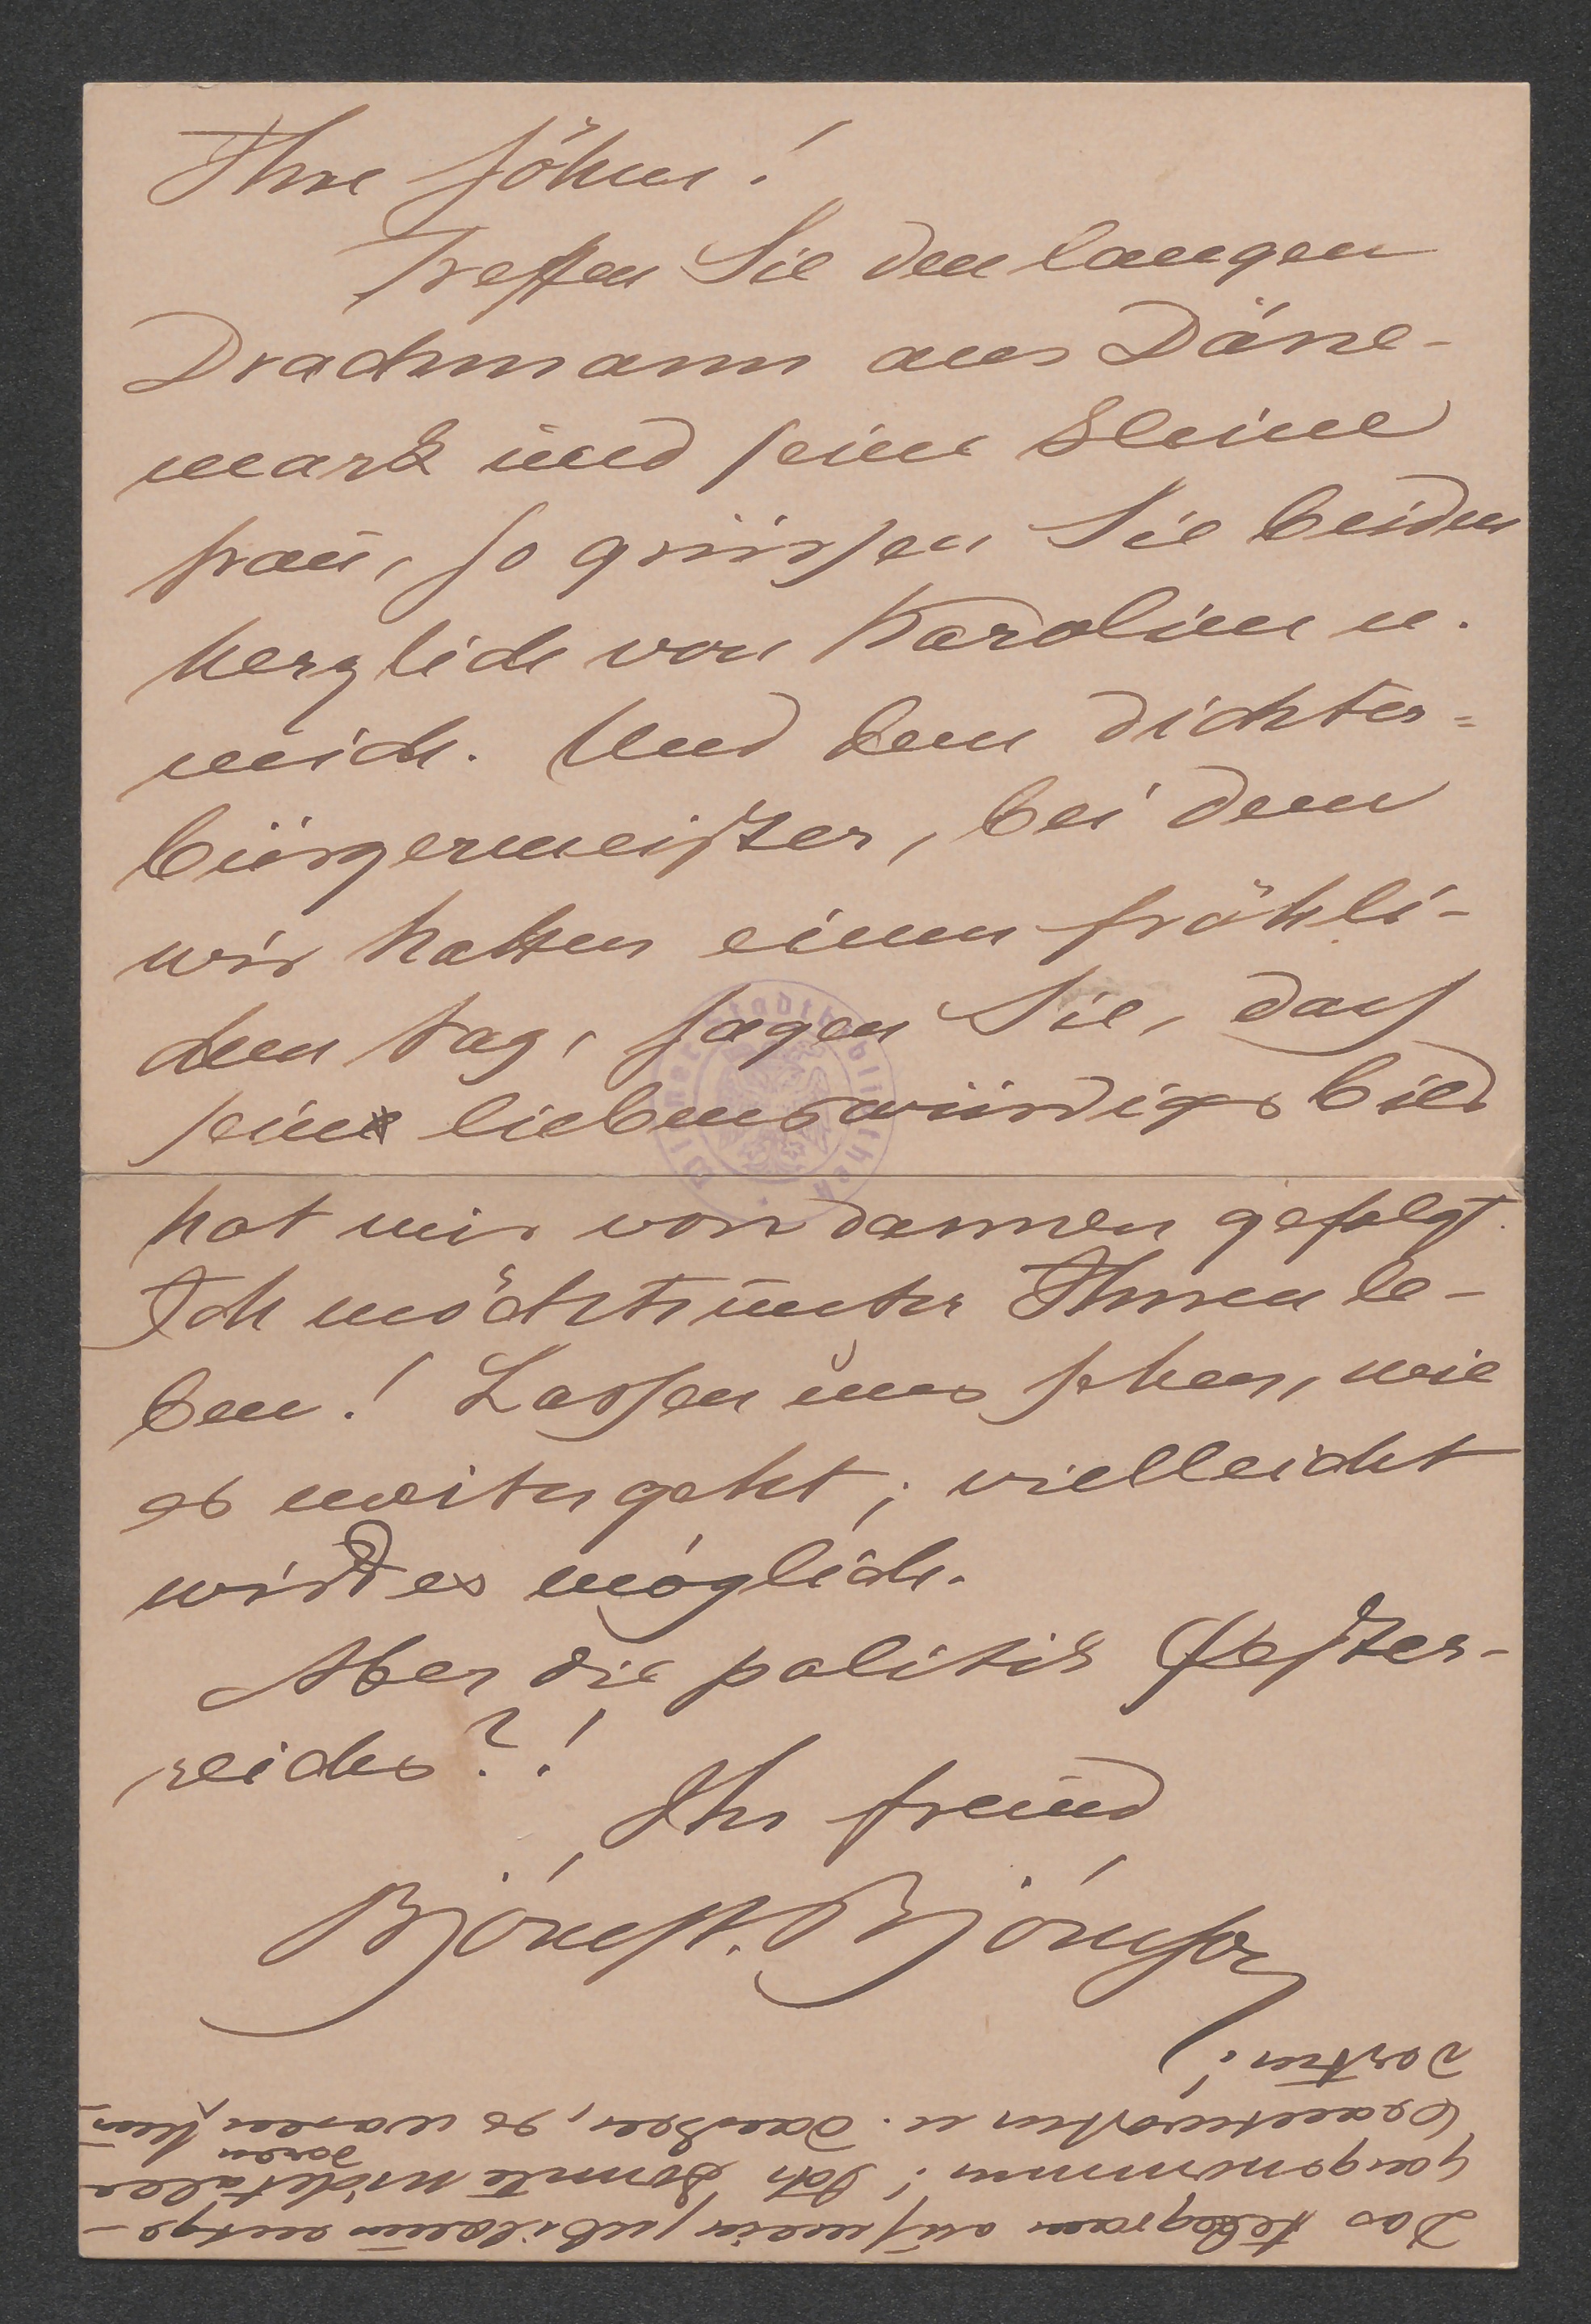 Ihre söhne!
Treffen Sie den langen
Drachmann aus Däne-
mark und seine kleine
frau, so grüssen Sie beiden
herzlich von Karoline u.
mich. Und dem dichter=
bürgermeister, bei dem
wir hatten einen fröhli-
chen tag, sagen Sie, dass
sein liebenswürdiges bild
hat mir von dannen gefolgt.
Ich möchte unter Ihnen le-
ben! Lassen uns sehen, wie
es weiter geht; vielleicht
wird es möglich.
Aber die politik Oester-
reichs?!
Ihr freund
Björnst. Björnson
Das telegram auf mein jubilaeum entge-
gengenommen! Ich konnte nicht alle
beantworten u. danken, es waren
deren
dorten!